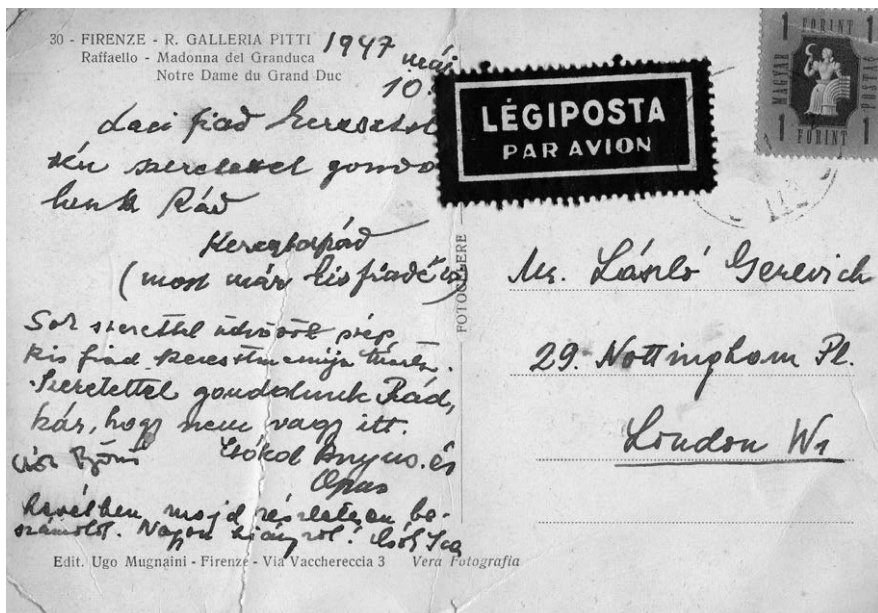 30 - FIRENZE - R. GALLERIA PITTI
Raffaello - Madonna del Granduca
Notre Dame du Grand Duc
1947 máj.
10.
Laci fiad keresztel
szeretettel gondo
lunk Rád
Keresztapád
(most már kisfiadé is)
Sok szerettel üdvözöl szép
kis fiad
Szeretettel gondolunk Rád,
kár, hogy nem vagy itt.
Csókol Anyus és
Apus
Levélben majd részletesen be-
számolok. Nagyon hiányzol! Csók Ica
Edit. Ugo Mugnaini - Firenze - Via Vacchereccia 3 Vera Fotografia
FOTOCELERE
LÉGIPOSTA
PAR AVION
1 FORINT 1
MAGYAR POSTA
1 FORINT 1
Mr. László Gerevich
29. Nottingham Pl.
London W1